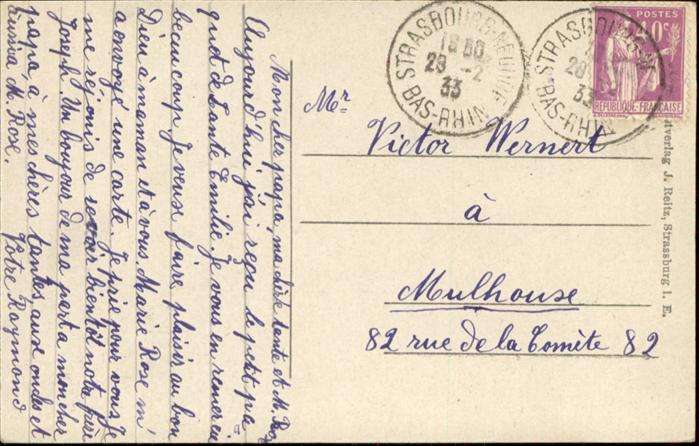 Mon cher papa, ma chère tante et M. Roz
Aujourd'hui j'ai reçu le petit pa
quet de tante Emilie. Je vous en remercie
beaucoup. Je veux faire plaisir au bon
Dieu à maman et à vous. Marie Rose m'
a envoyé une carte. Je prie pour vous. Je
me réjouis de revoir bientôt notre frère
Joseph. Un bonjour de ma part a mon cher
papa, à mes chères tantes aux oncles et
M. Rose.
Votre Raymond
STRASBOURG-NEUDORF
18 30
28 -2
33
BAS-RHIN
STRASBOURG-NEUDORF
28
33
BAS-RHIN
POSTES
40c
REPUBLIQUE FRANÇAISE
Mr
Victor Wernert
à
Mulhouse
82 rue de la Comète 82
verlag J. Reitz, Strassburg i. E.